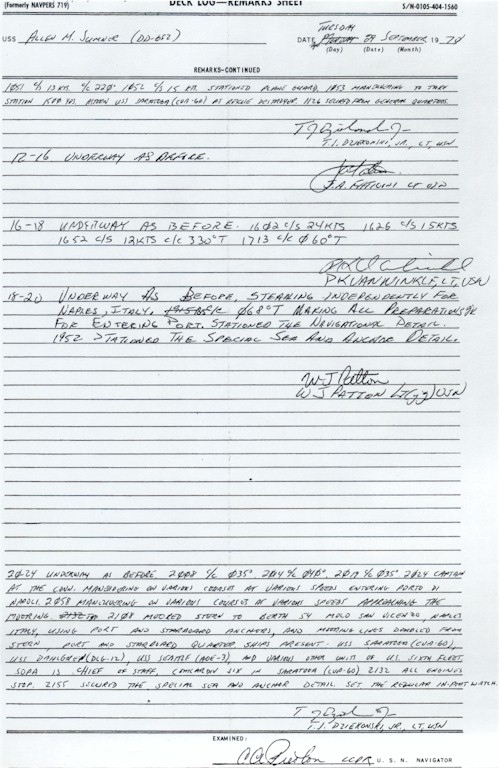 (Formerly NAVPERS 719)
DECK LOG—REMARKS SHEET
S/N-0105-404-1560
USS ALLEN M. SUMNER (DD-692)
TUESDAY
DATE 29 SEPTEMBER 1970
(Day) (Date) (Month)
REMARKS—CONTINUED
1051 C/S 13 KTS. C/C 220° 1052 C/S 15 KTS. STATIONED PLANE GUARD. 1053 MANEUVERING TO TAKE
STATION 1500 YDS. ASTERN USS SARATOGA (CVA-60) AS RESCUE DESTROYER 1126 SECURED FROM GENERAL QUARTERS.
T.I. DZIEKONSKI, JR., LT, USN
12-16 UNDERWAY AS BEFORE.
LT USN
16-18 UNDERWAY AS BEFORE. 1602 C/S 24KTS 1626 C/S 15KTS
1652 C/S 12KTS C/C 330°T 1713 C/C 060°T
P K VAN WINKLE, LT, USN
18-20 UNDERWAY AS BEFORE, STEAMING INDEPENDENTLY FOR
NAPLES, ITALY. 068°T MAKING ALL PREPARATIONS
FOR ENTERING PORT. STATIONED THE NAVIGATIONAL DETAIL.
1952 STATIONED THE SPECIAL SEA AND ANCHOR DETAIL.
W J Patton
W J PATTON LT(jg) USN
20-24 UNDERWAY AS BEFORE 2008 C/C 035° 2014 C/C 040° 2017 C/C 035° 2024 CAPTAIN
AT THE CONN. MANEUVERING ON VARIOUS COURSES AT VARIOUS SPEEDS ENTERING PORTO DI
NAPOLI. 2058 MANEUVERING ON VARIOUS COURSES AT VARIOUS SPEEDS APPROACHING THE
MOORING. 2108 MOORED STERN TO BERTH 54 MOLO SAN VICENZO, NAPLES
ITALY, USING PORT AND STARBOARD ANCHORS, AND MOORING LINES DOUBLED FROM
STERN, PORT AND STARBOARD QUARTER SHIPS PRESENT: USS SARATOGA (CVA-60),
USS DAHLGREN (DLG-12), USS SEATTLE (AOE-3), AND VARIOUS OTHER UNITS OF U.S. SIXTH FLEET.
SOPA IS CHIEF OF STAFF, COMCARDIV SIX IN SARATOGA (CVA-60) 2132 ALL ENGINES
STOP. 2155 SECURED THE SPECIAL SEA AND ANCHOR DETAIL. SET THE REGULAR IN-PORT WATCH.
T.I. DZIEKONSKI, JR., LT, USN
EXAMINED:
LCDR U. S. N. NAVIGATOR